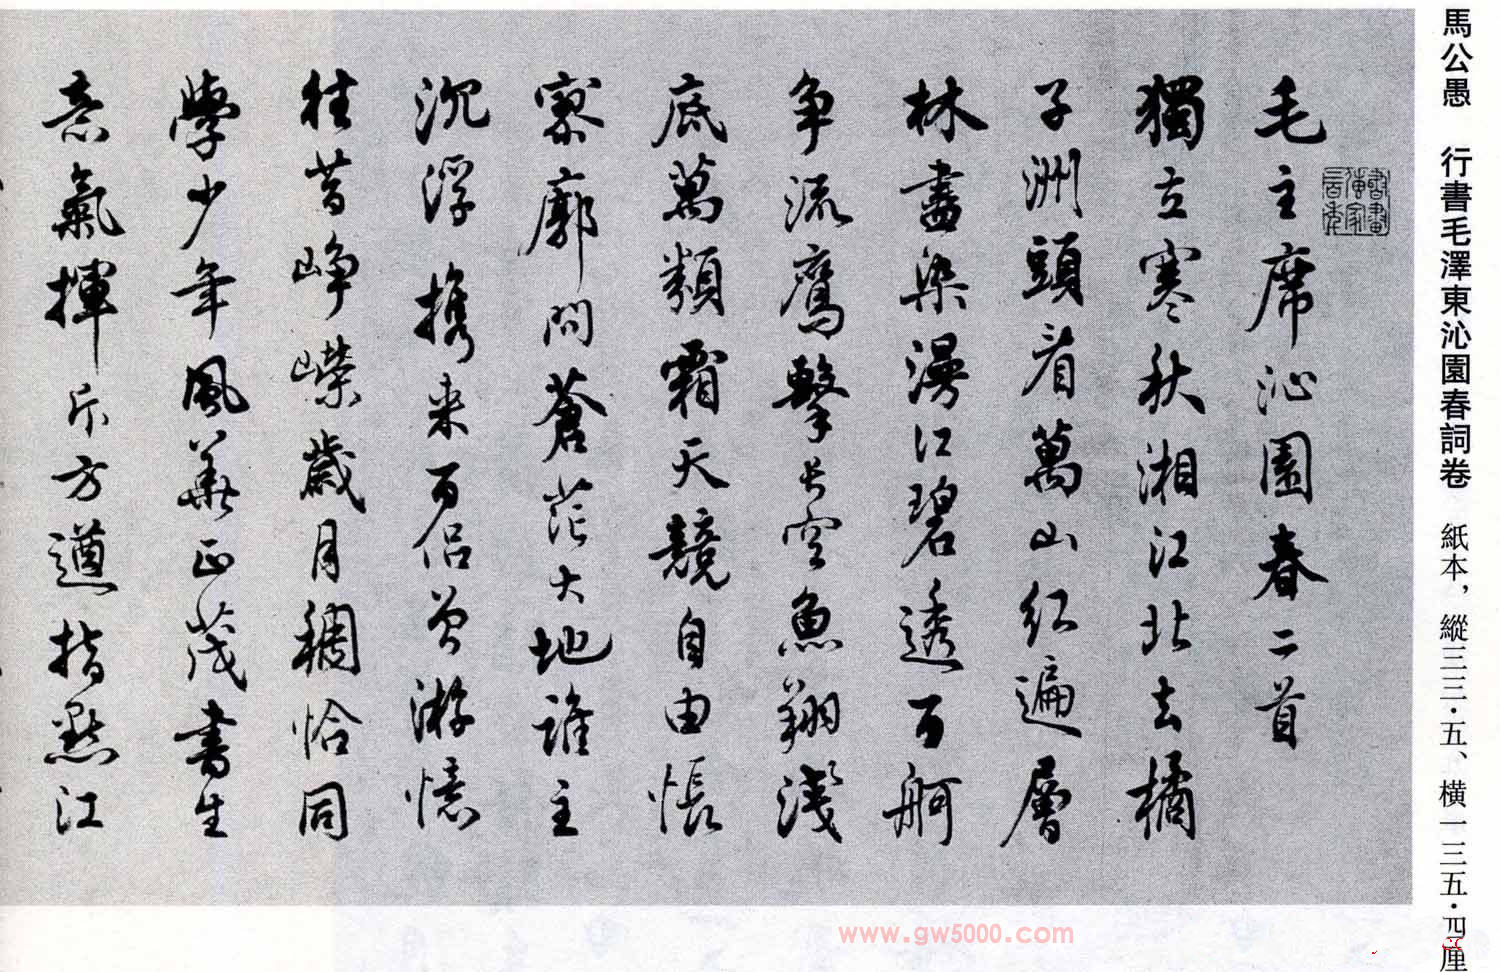 馬公愚　行書毛澤東沁園春詞卷　紙本，縱三三·五、橫一三五·四厘
書畫傳家三百年
毛主席沁園春二首
獨立寒秋湘江北去橘
子洲頭看萬山紅遍層
林盡染漫江碧透百舸
争流鷹擊長空魚翔淺
底萬類霜天競自由悵
寥廓問蒼茫大地誰主
沉浮携来百侣曾游憶
往昔崢嶸歲月稠恰同
學少年風華正茂書生
意氣揮斥方遒指點江
www.gw5000.com